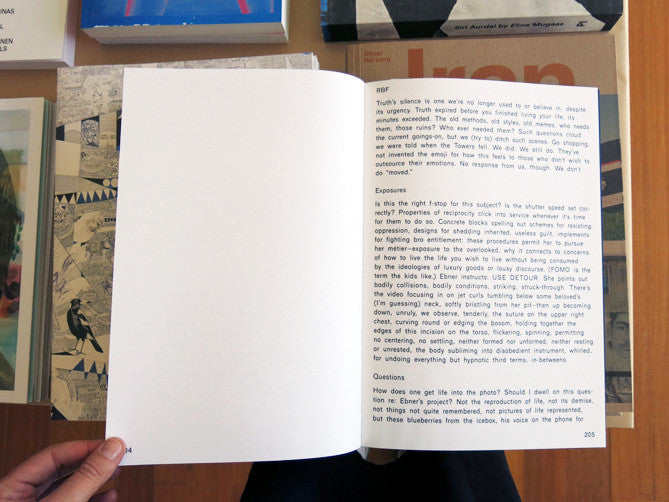 INAS
NEN
LS
Siri Aurdal by Eline Mugaas
Oliver
Herring
Iron
04
RBF
Truth's silence is one we're no longer used to or believe in, despite
its urgency. Truth expired before you finished living your life, its
minutes exceeded. The old methods, old styles, old memes, who needs
them, those ruins? Who ever needed them? Such questions cloud
the current goings-on, but we (try to) ditch such scenes. Go shopping,
we were told when the Towers fell: We did. We still do. They've
not invented the emoji for how this feels to those who don't wish to
outsource their emotions. No response from us, though. We don't
do "moved."
Exposures
Is this the right f-stop for this subject? Is the shutter speed set cor-
rectly? Properties of reciprocity click into service whenever it's time
for them to do so. Concrete blocks spelling out schemes for resisting
oppression, designs for shedding inherited, useless guilt, implements
for fighting bro entitlement: these procedures permit her to pursue
her métier—exposure to the overlooked, why it connects to concerns
of how to live the life you wish to live without being consumed
by the ideologies of luxury goods or lousy discourse. (FOMO is the
term the kids like.) Ebner instructs: USE DETOUR. She points out
bodily collisions, bodily conditions, striking, struck-through. There's
the video focusing in on jet curls tumbling below some beloved's
(I'm guessing) neck, softly bristling from her pit—then up becoming
down, unruly, we observe, tenderly, the suture on the upper right
chest, curving round or edging the bosom, holding together the
edges of this incision on the torso, flickering, spinning, permitting
no centering, no settling, neither formed nor unformed, neither resting
or unrested, the body subliming into disobedient instrument, whirled,
for undoing everything but hypnotic third terms, in-betweens.
Questions
How does one get life into the photo? Should I dwell on this ques-
tion re: Ebner's project? Not the reproduction of life, not its demise,
not things not quite remembered, not pictures of life represented,
but these blueberries from the icebox, his voice on the phone for
205